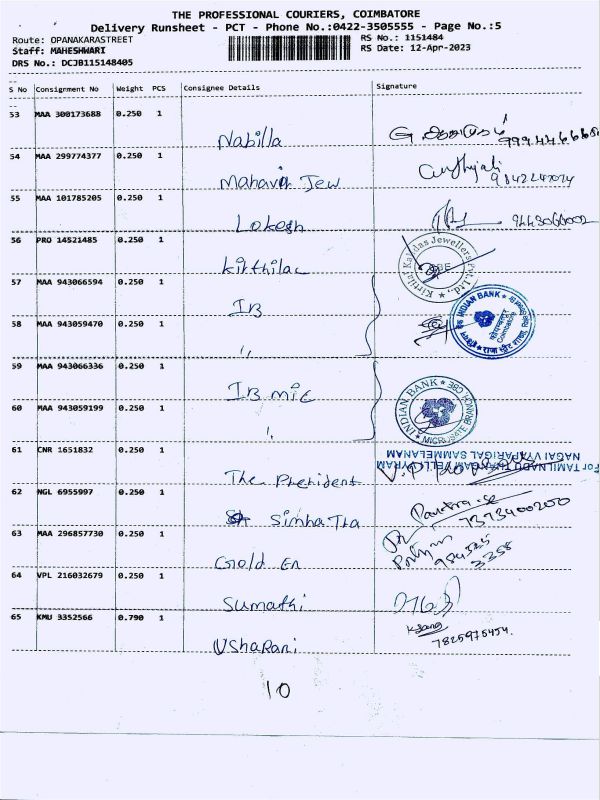 THE PROFESSIONAL COURIERS, COIMBATORE
Delivery Runsheet - PCT - Phone No.:0422-3505555 - Page No.:5
Route: OPANAKARASTREET
RS No.: 1151484
Staff: MAHESHWARI
RS Date: 12-Apr-2023
DRS No.: DCJB115148405
S No Consignment No Weight PCS Consignee Details Signature
53 MAA 300173688 0.250 1
Nabilla
54 MAA 299774377 0.250 1
Mahavir Jew
55 MAA 101785205 0.250 1
Lokesh
56 PRO 14521485 0.250 1
Kirthilal
Kirtilal Kalidas Jewellers Pvt. Ltd.,
CBE
57 MAA 943066594 0.250 1
IB
INDIAN BANK
Coimbatore
58 MAA 943059470 0.250 1
"
59 MAA 943066336 0.250 1
IB mic
INDIAN BANK
MICROSATE BRANCH CBE
60 MAA 943059199 0.250 1
"
61 CNR 1651832 0.250 1
The President
For TAMILNADU THANGAM VELLI VYRAM
NAGAI VYAPARIGAL SAMMELANAM
62 NGL 6955997 0.250 1
Simha Tra
7373400200
63 MAA 296857730 0.250 1
Gold En
984325
3358
64 VPL 216032679 0.250 1
Sumathi
65 KMU 3352566 0.790 1
UshaRani
7825975454.
10